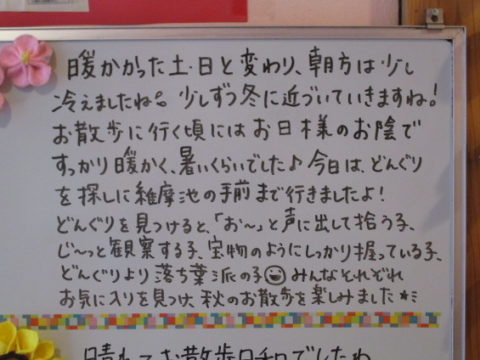 暖かかった土・日と変わり、朝方は少し
冷えましたね。少しずつ冬に近づいていきますね!
お散歩に行く頃にはお日様のお陰で
すっかり暖かく、暑いくらいでした♪今日は、どんぐり
を探しに維摩池の手前まで行きましたよ!
どんぐりを見つけると、「お〜」と声に出して拾う子、
じ〜っと観察する子、宝物のようにしっかり握っている子、
どんぐりより落ち葉派の子😃みんなそれぞれ
お気に入りを見つけ、秋のお散歩を楽しみました★ミ
晴れてお散歩日和でしたね